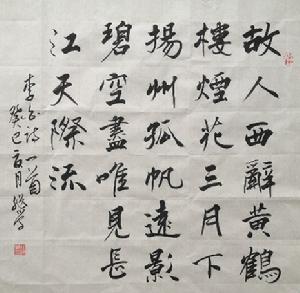 故人西辭黃鶴
樓煙花三月下
揚州孤帆遠影
碧空盡唯見長
江天際流
李白詩一首
癸巳夏月